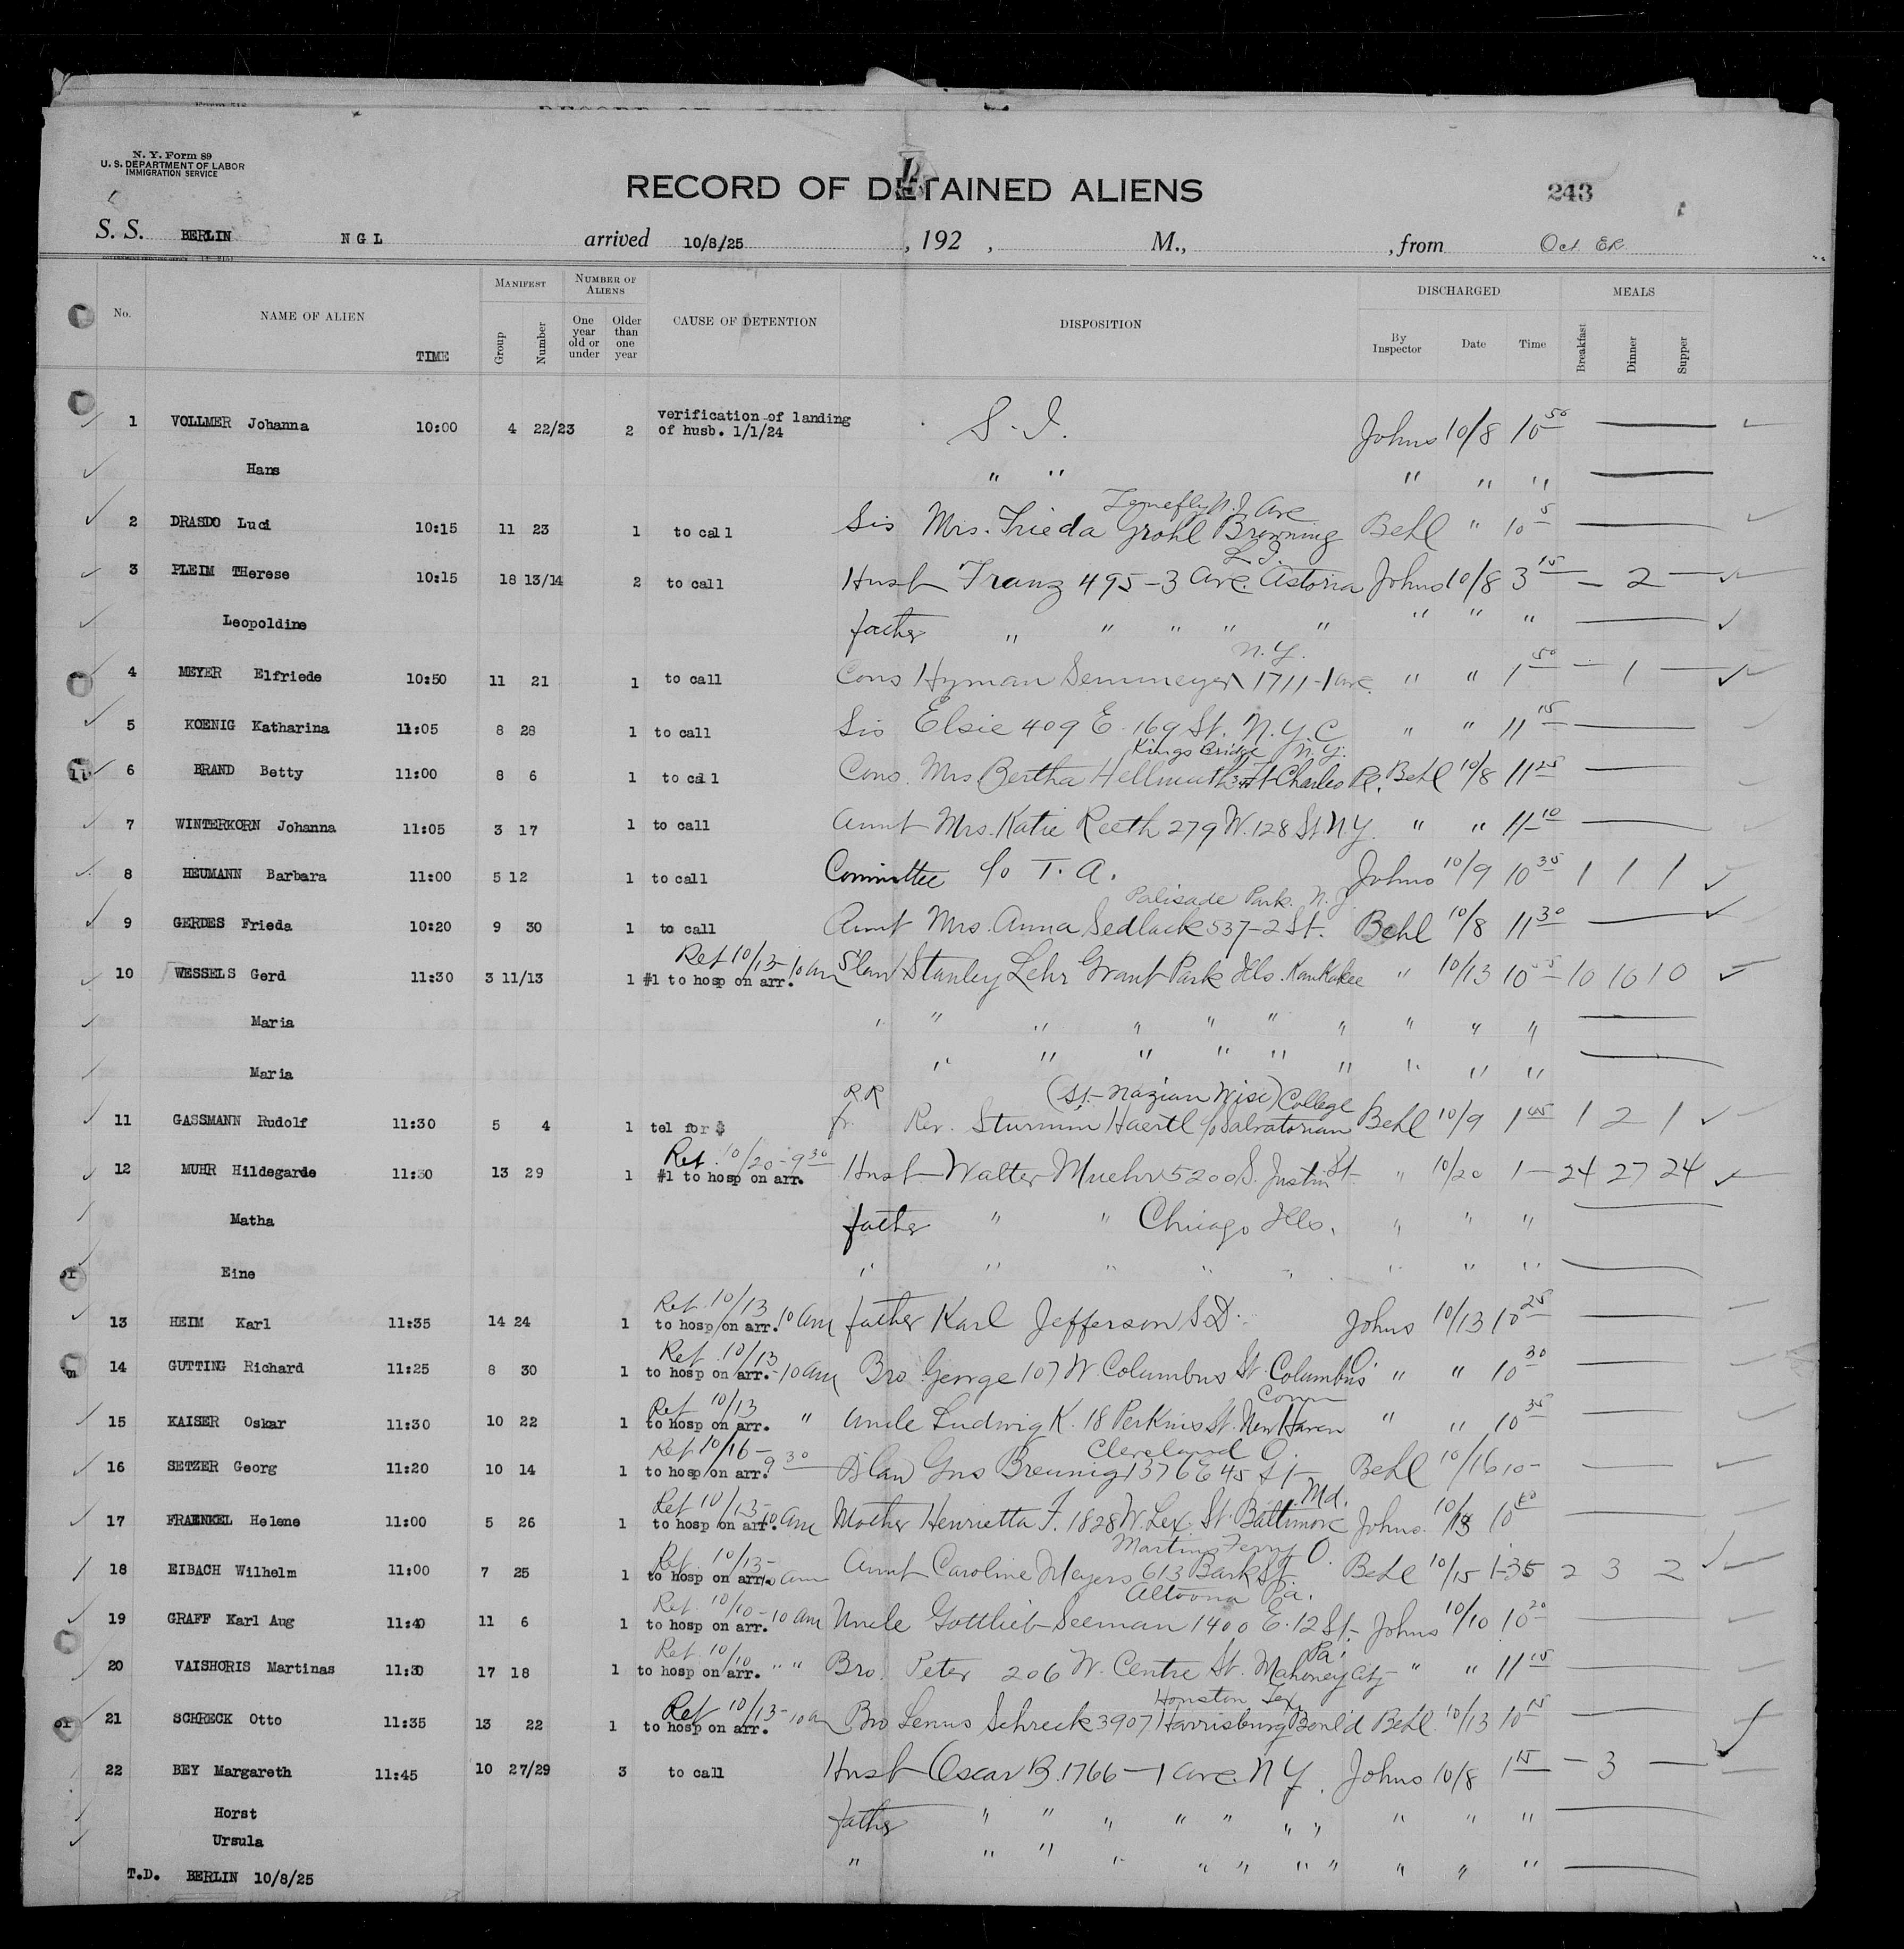 N. Y. Form 89
U. S. DEPARTMENT OF LABOR
IMMIGRATION SERVICE
RECORD OF DETAINED ALIENS
243
S. S. BERLIN N G L arrived 10/8/25 , 192 , M., , from Oct. ER.
No. NAME OF ALIEN TIME MANIFEST Group Number NUMBER OF ALIENS One year old or under Older than one year CAUSE OF DETENTION DISPOSITION DISCHARGED By Inspector Date Time MEALS Breakfast Dinner Supper
verification of landing
1 VOLLMER Johanna 10:00 4 22/23 2 of husb. 1/1/24 S. I. Johns 10/8 10 50
Hans " " " " "
Tenefly N. J. Ave
2 DRASDO Luci 10:15 11 23 1 to call Sis Mrs. Frieda Grohl Browning Behl " 10 5
L. I.
3 PLEIM THerese 10:15 18 13/14 2 to call Husb Franz 495-3 Ave Astoria Johns 10/8 3 15 — 2 —
Leopoldine father " " " " " " " "
N. Y.
4 MEYER Elfriede 10:50 11 21 1 to call Cons Hyman Semmeyer 1711-1 ave. " " 1 50 — 1 —
5 KOENIG Katharina 11:05 8 28 1 to call Sis Elsie 409 E. 169 St. N. Y. C " " 11 15
Kings Bridge N. Y.
6 BRAND Betty 11:00 8 6 1 to call Cons. Mrs Bertha Hellmuth Charles Pl. Behl 10/8 11 25
7 WINTERKORN Johanna 11:05 3 17 1 to call Aunt Mrs. Katie Reeth 279 W. 128 St. N. Y. " " 11 10
8 HEUMANN Barbara 11:00 5 12 1 to call Committee c/o T. A. Johns 10/9 10 35 1 1 1
Palisade Park. N. J.
9 GERDES Frieda 10:20 9 30 1 to call Aunt Mrs. Anna Sedlack 537-2 St. Behl 10/8 11 30
Ret 10/13-10 am
10 WESSELS Gerd 11:30 3 11/13 1 #1 to hosp on arr. S'law Stanley Lehr Grant Park Ills. Kankakee " 10/13 10 10 10 10
Maria " " " " " " " " " "
Maria " " " " " " " " "
R.R (St. Nazian Wisc) College
11 GASSMANN Rudolf 11:30 5 4 1 tel for $ fr. Rev. Sturmin Haertl c/o Salvatorian Behl 10/9 1 45 1 2 1
Ret. 10/20-9 30
12 MUHR Hildegarde 11:30 13 29 1 #1 to hosp on arr. Husb Walter Muehr 5200 S. Justin St. " 10/20 1— 24 27 24
Matha father " " Chicago Ills. " " "
Eine " " " " " " " "
Ret. 10/13
13 HEIM Karl 11:35 14 24 1 to hosp on arr. 10 am father Karl Jefferson S.D. Johns 10/13 10 25
Ret 10/13
14 GUTTING Richard 11:25 8 30 1 to hosp on arr. -10 am Bro George 107 W. Columbus St Columbus O. " " 10 30
Ret 10/13 Conn
15 KAISER Oskar 11:30 10 22 1 to hosp on arr. " Uncle Ludwig K. 18 Perkins St. New Haven " " 10 35
Ret 10/16-9 30 Cleveland O.
16 SETZER Georg 11:20 10 14 1 to hosp on arr. B'law Gus Breunig 1376 E 45 St Behl 10/16 10-
Ret 10/13-10 am Md.
17 FRAENKEL Helene 11:00 5 26 1 to hosp on arr. Mother Henrietta F. 1828 W. Lex. St. Baltimore Johns. 10/13 10
Ret. 10/13-10 am Martins Ferry O.
18 EIBACH Wilhelm 11:00 7 25 1 to hosp on arr. Aunt Caroline Meyers 613 Bark St. Behl 10/15 1-35 2 3 2
Ret. 10/10-10 am Altoona Pa.
19 GRAFF Karl Aug 11:40 11 6 1 to hosp on arr. Uncle Gottlieb Seeman 1400 E. 12 St. Johns 10/10 10 20
Ret. 10/10 Pa.
20 VAISHORIS Martinas 11:30 17 18 1 to hosp on arr. " " Bro. Peter 206 W. Centre St. Mahoney City " " 11 15
Ret 10/13-10 a Houston Tex.
21 SCHRECK Otto 11:35 13 22 1 to hosp on arr. Bro Lenus Schreck 3907 Harrisburg Boul'd Behl 10/13 10 15
22 BEY Margareth 11:45 10 27/29 3 to call Husb Oscar B. 1766-1 ave. N Y. Johns 10/8 1 15 — 3 —
Horst father " " " " " " " " " "
Ursula
T.D. BERLIN 10/8/25 " " " " " " " " " " "